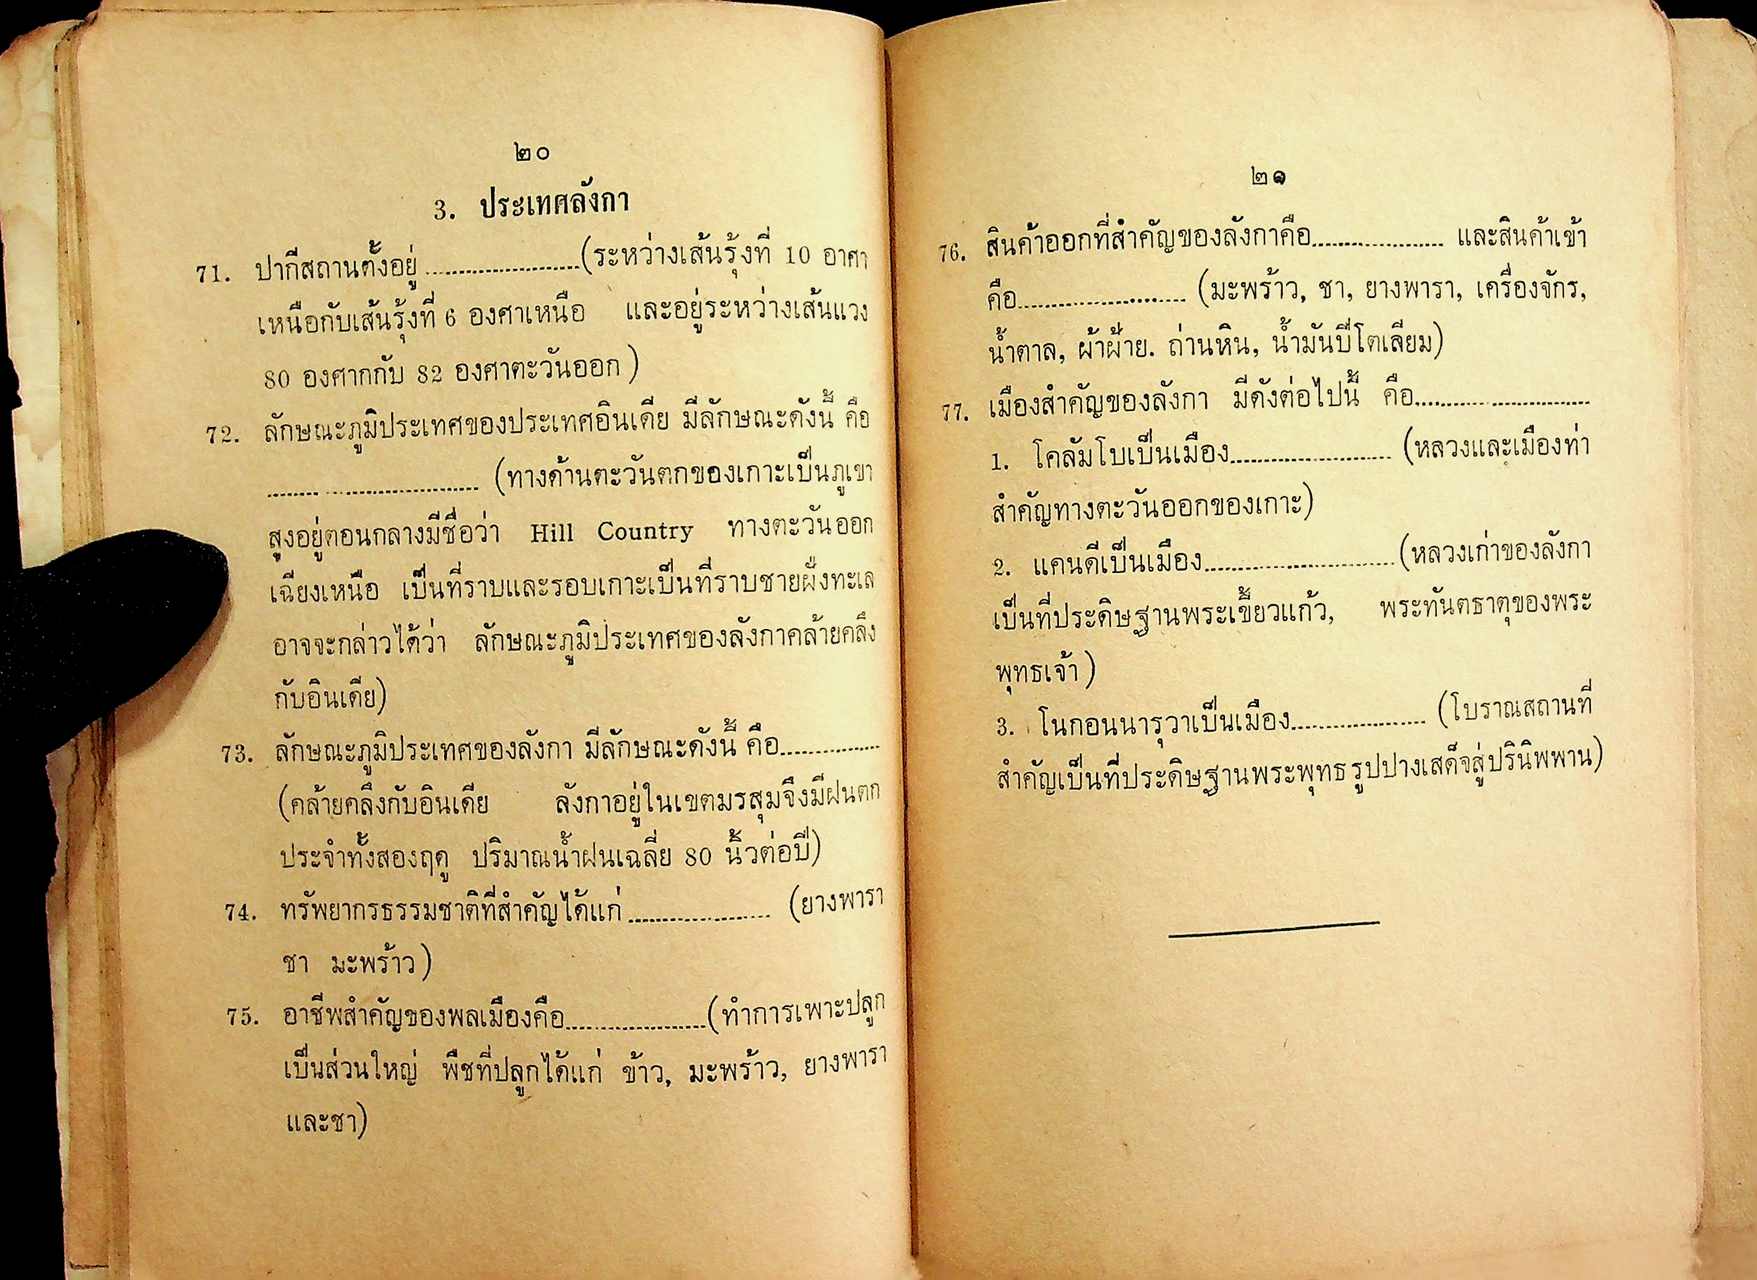 ๒๐
3. ประเทศลังกา
71. ปากีสถานตั้งอยู่......................(ระหว่างเส้นรุ้งที่ 10 อาศา
เหนือกับเส้นรุ้งที่ 6 องศาเหนือ และอยู่ระหว่างเส้นแวง
80 องศากกับ 82 องศาตะวันออก)
72. ลักษณะภูมิประเทศของประเทศอินเดีย มีลักษณะดังนี้ คือ
.............................. (ทางด้านตะวันตกของเกาะเป็นภูเขา
สูงอยู่ตอนกลางมีชื่อว่า Hill Country ทางตะวันออก
เฉียงเหนือ เป็นที่ราบและรอบเกาะเป็นที่ราบชายฝั่งทะเล
อาจจะกล่าวได้ว่า ลักษณะภูมิประเทศของลังกาคล้ายคลึง
กับอินเดีย)
73. ลักษณะภูมิประเทศของลังกา มีลักษณะดังนี้ คือ...............
(คล้ายคลึงกับอินเดีย ลังกาอยู่ในเขตมรสุมจึงมีฝนตก
ประจำทั้งสองฤดู ปริมาณน้ำฝนเฉลี่ย 80 นิ้วต่อปี)
74. ทรัพยากรธรรมชาติที่สำคัญได้แก่.................... (ยางพารา
ชา มะพร้าว)
75. อาชีพสำคัญของพลเมืองคือ....................(ทำการเพาะปลูก
เป็นส่วนใหญ่ พืชที่ปลูกได้แก่ ข้าว, มะพร้าว, ยางพารา
และชา)
๒๑
76. สินค้าออกที่สำคัญของลังกาคือ.................... และสินค้าเข้า
คือ........................ (มะพร้าว, ชา, ยางพารา, เครื่องจักร,
น้ำตาล, ผ้าฝ้าย. ถ่านหิน, น้ำมันปีโตเลียม)
77. เมืองสำคัญของลังกา มีดังต่อไปนี้ คือ..........................
1. โคลัมโบเป็นเมือง........................ (หลวงและเมืองท่า
สำคัญทางตะวันออกของเกาะ)
2. แคนดีเป็นเมือง............................(หลวงเก่าของลังกา
เป็นที่ประดิษฐานพระเขี้ยวแก้ว, พระทันตธาตุของพระ
พุทธเจ้า)
3. โนกอนนารุวาเป็นเมือง.................... (โบราณสถานที่
สำคัญเป็นที่ประดิษฐานพระพุทธรูปปางเสด็จสู่ปรินิพพาน)